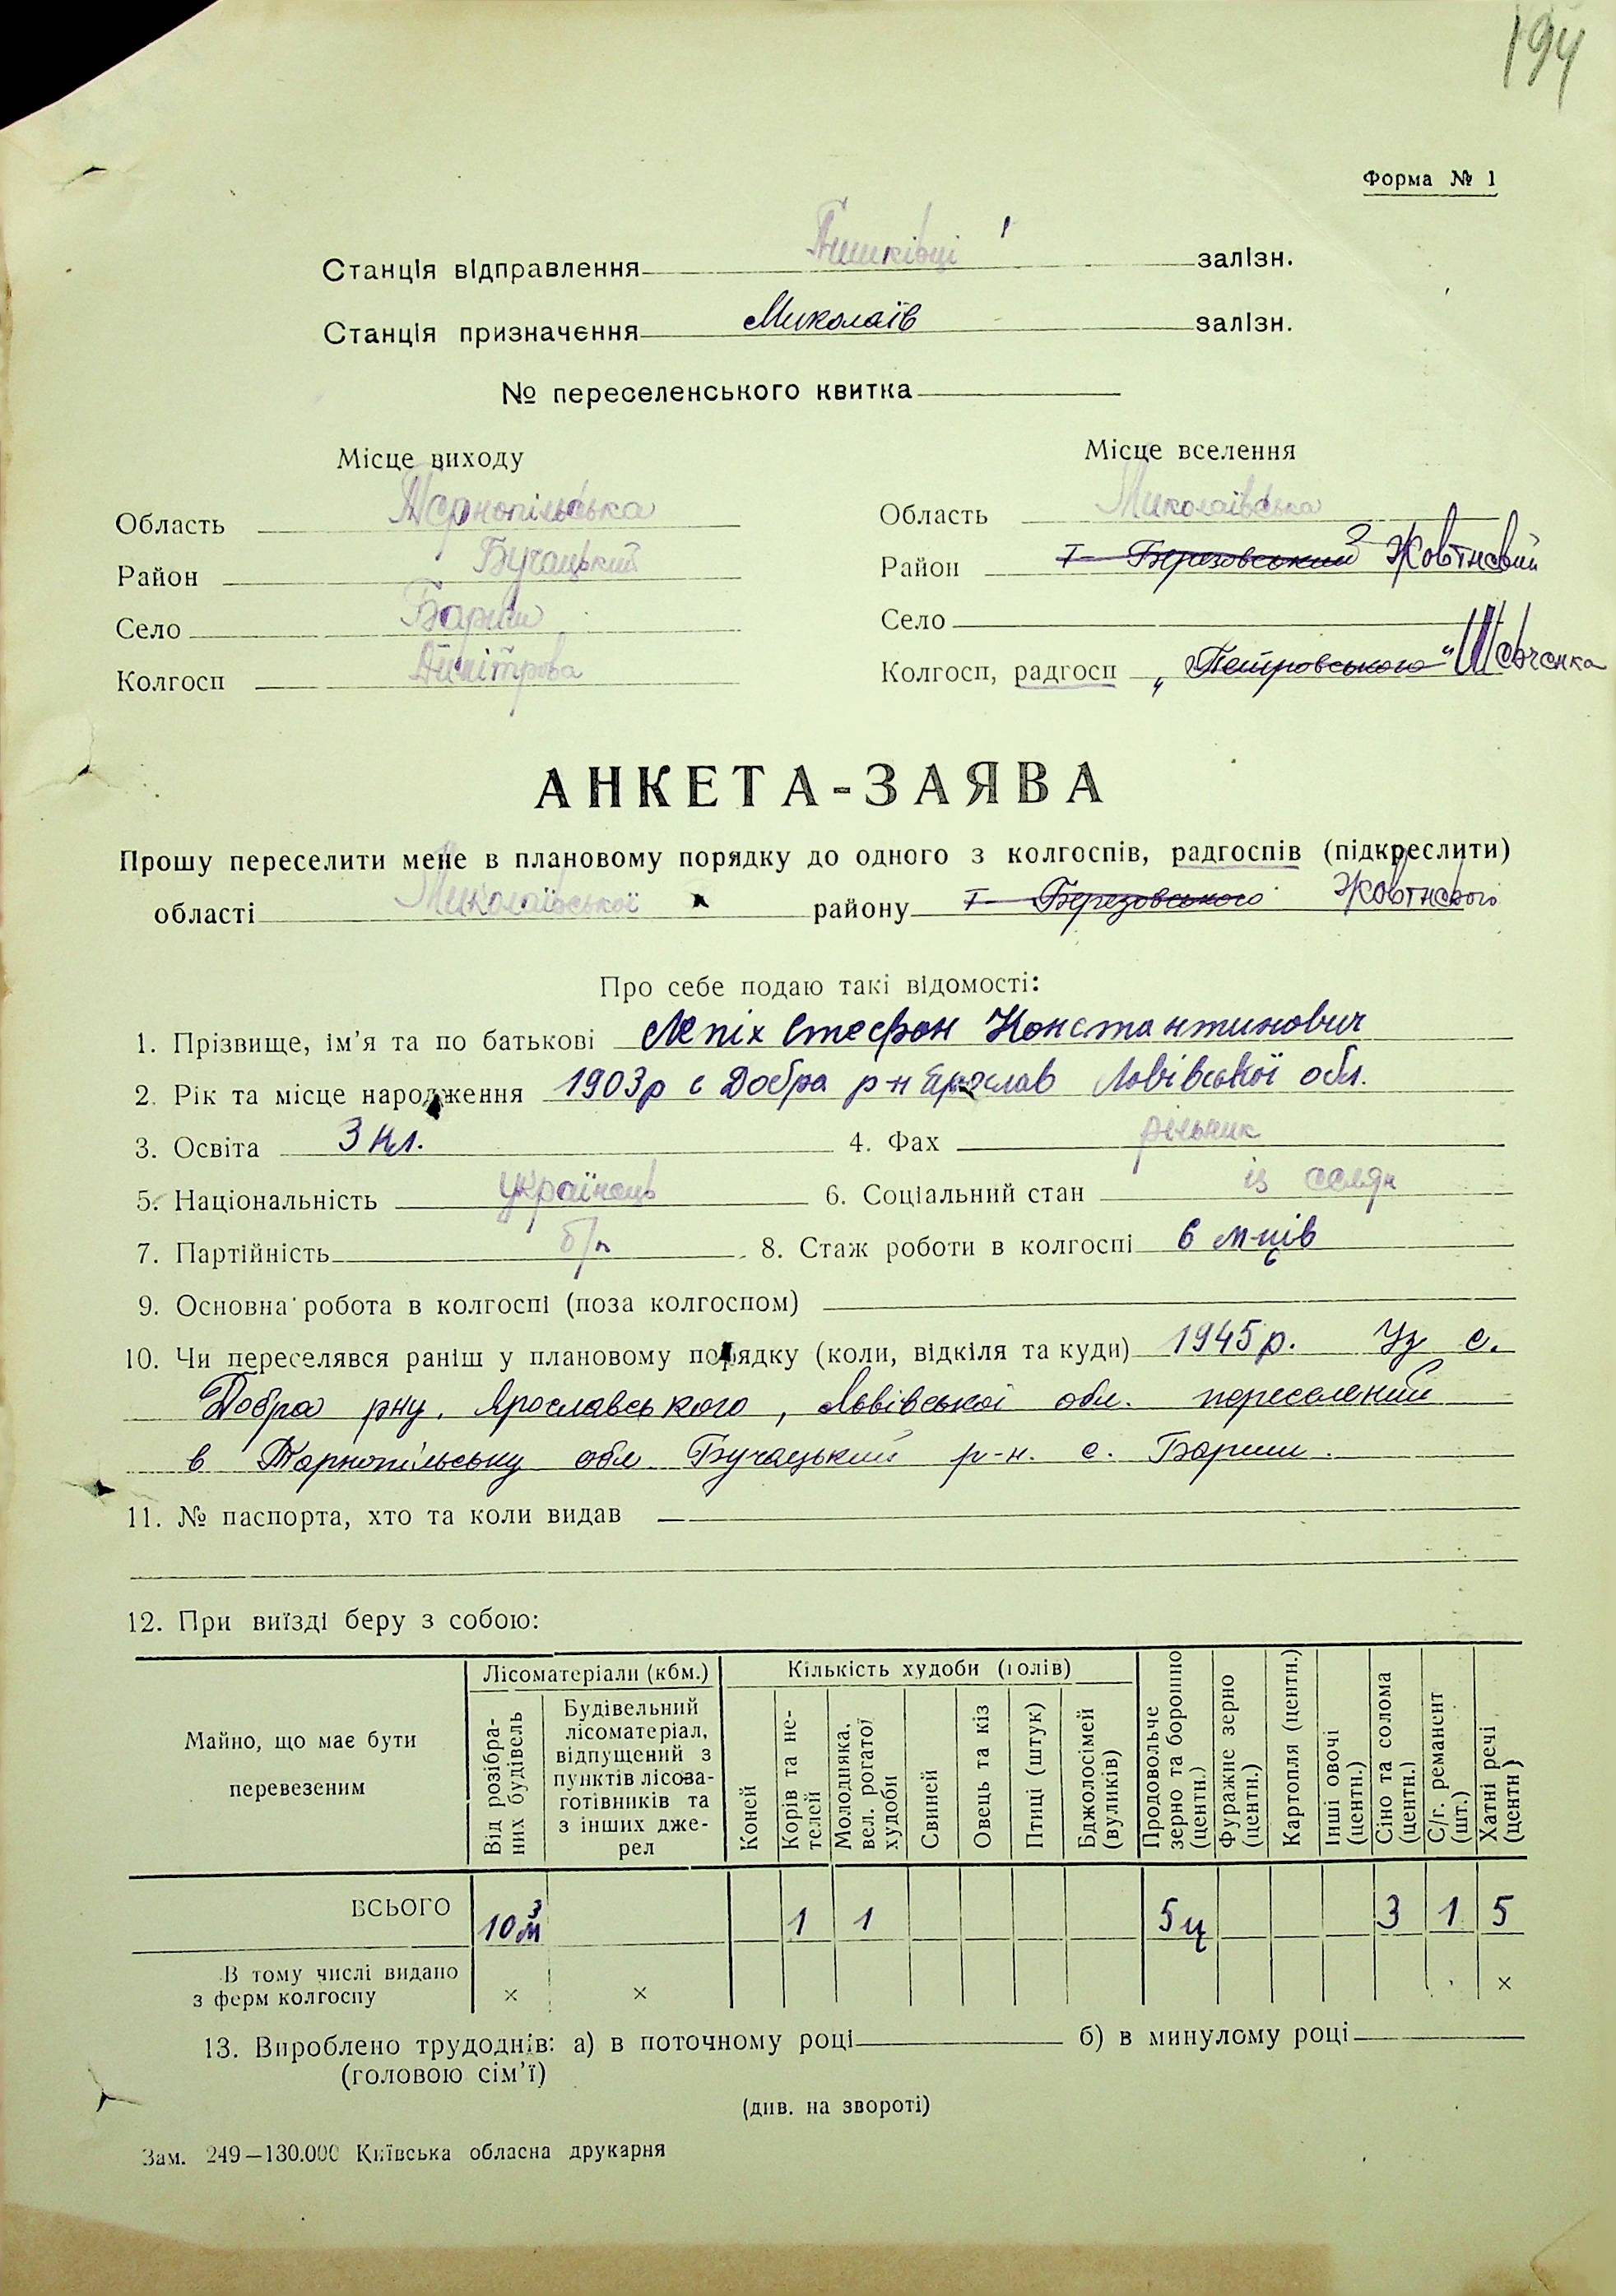 194
Форма № 1
Станція відправлення Пишківці залізн.
Станція призначення Миколаїв залізн.
№ переселенського квитка
Місце виходу
Область Тернопільська
Район Бучацький
Село Бариш
Колгосп Димітрова
Місце вселення
Область Миколаївська
Район Т-Березовський Жовтневий
Село
Колгосп, радгосп „Петровського" Шевченка
АНКЕТА-ЗАЯВА
Прошу переселити мене в плановому порядку до одного з колгоспів, радгоспів (підкреслити)
області Миколаївської району Т-Березовського Жовтневого
Про себе подаю такі відомості:
1. Прізвище, ім'я та по батькові Лепіх Стефан Константинович
2. Рік та місце народження 1903р с Добра р-н Ярослав Львівської обл.
3. Освіта 3 кл. 4. Фах рільник
5. Національність українець 6. Соціальний стан із селян
7. Партійність б/п 8. Стаж роботи в колгоспі 6 м-ців
9. Основна робота в колгоспі (поза колгоспом)
10. Чи переселявся раніш у плановому порядку (коли, відкіля та куди) 1945р. Із с.
Добра рну. Ярославського, Львівської обл. переселений
в Тернопільську обл Бучацький р-н. с. Бариш.
11. № паспорта, хто та коли видав —
12. При виїзді беру з собою:
Майно, що має бути перевезеним
Лісоматеріали (кбм.)
Від розібраних будівель
Будівельний лісоматеріал, відпущений з пунктів лісозаготівників та з інших джерел
Кількість худоби (голів)
Коней
Корів та нетелей
Молодняка, вел. рогатої худоби
Свиней
Овець та кіз
Птиці (штук)
Бджолосімей (вуликів)
Продовольче зерно та борошно (центн.)
Фуражне зерно (центн.)
Картопля (центн.)
Інші овочі (центн.)
Сіно та солома (центн.)
С/г. реманент (шт.)
Хатні речі (центн)
ВСЬОГО 10 м³ 1 1 5 ц 3 1 5
В тому числі видано з ферм колгоспу × × ×
13. Вироблено трудоднів: а) в поточному році б) в минулому році
(головою сім'ї)
(див. на звороті)
Зам. 249—130.000 Київська обласна друкарня